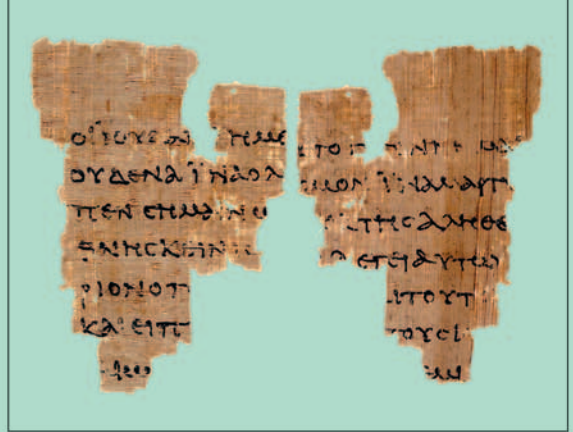 ΟΙ ΙΟΥΔΑΙ ΗΜΕ
ΟΥΔΕΝΑ ΪΝΑ Ο Λ
ΠΕΝ CΗΜΑΙΝΩ
ΘΝΗCΚΕΙΝ
ΡΙΟΝ Ο Π
ΚΑΙ ΕΙΠ
ΤΟ Γ ΝΝΗΜΑΙ
CΜΟΝ ΪΝΑ ΜΑΡΤΥ
ΤΗC ΑΛΗΘΕ
ΛΕΓΕΙ ΑΥΤΩ
ΑΙ ΤΟΥΤ
ΤΟΥC Ι